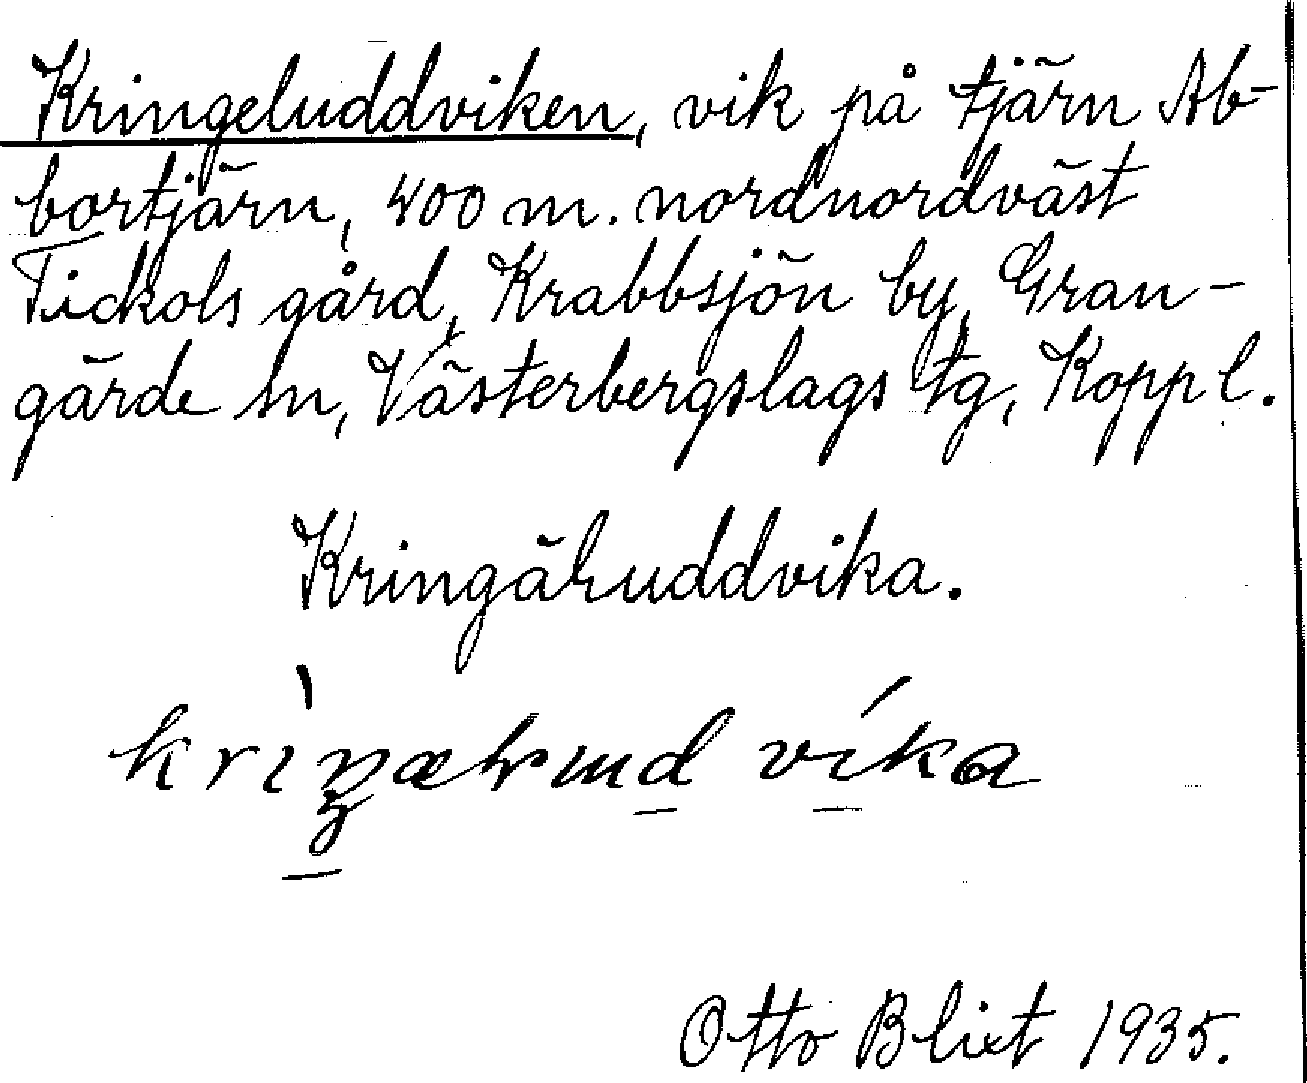 Kringeluddviken, vik på tjärn Ab-
bortjärn, 400 m. nordnordväst
Tickols gård, Krabbsjön by, Gran-
gärde sn, Västerbergslags tg, Kopp l.
Kringäluddvika.
Otto Blixt 1935.